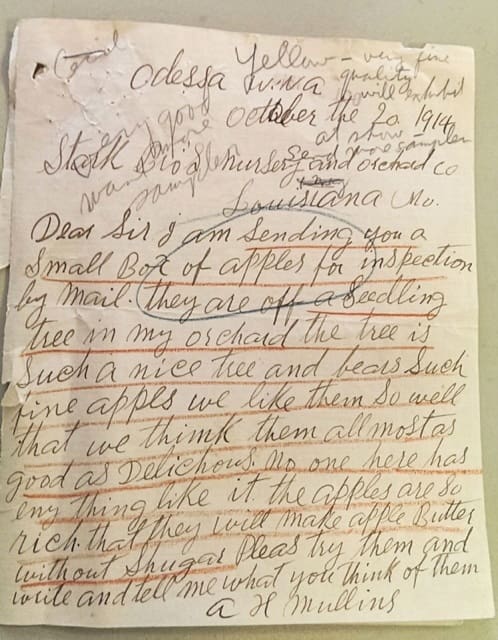 Yellow - very fine
quality
Odessa W.Va will exhibit
very good October the 20 1914
at show -
Stark Bro S nursery and orchard co
want more Send more samples
samples
Louisiana Mo.
Dear Sir I am sending you a
Small Box of apples for inspection
by mail. they are off a Seedling
tree in my orchard the tree is
Such a nice tree and bears Such
fine apples we like them So well
that we thimk them allmost as
good as Delichous. no one here has
eny thing like it. the apples are so
rich. that they will make apple Butter
without Shugar Pleas try them and
write and tell me what you think of them
A H Mullins